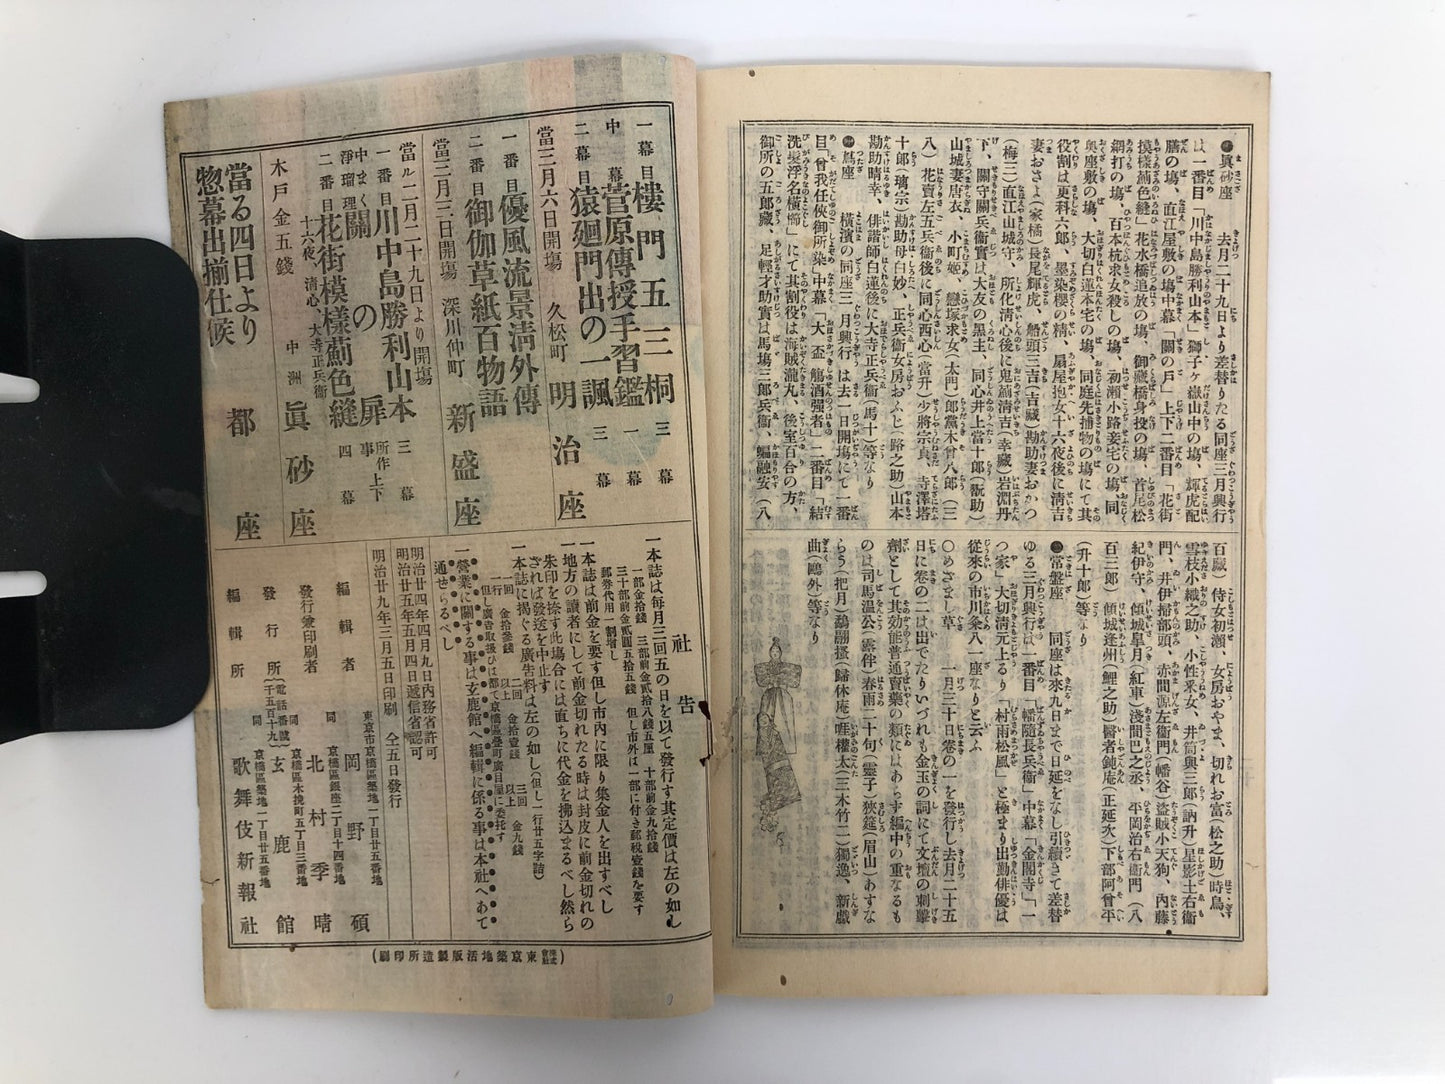 ●眞砂座　去月二十九日より差替りたる同座三月興行
は一番目「川中島勝利山本」獅子ヶ嶽山中の塲、輝虎配
膳の塲、直江屋敷の塲中幕「關の戸」上下二番目「花街
摸樣薊色縫」花水橋追放の塲、御藏橋身投の塲、首尾松
網打の塲、百本杭求女殺しの塲、初瀬小路妾宅の塲、同
奥座敷の塲、大切白蓮本宅の塲、同庭先捕物の塲にて其
役割は更科六郎、墨染櫻の精、扇屋抱女十六夜後に清吉
妻おさよ(家橘)長尾輝虎、船頭三吉(吉藏)勘助妻おかつ
(梅二)直江山城守、所化清心後に鬼薊清吉(幸藏)岩淵丹
下、關守關兵衞實は大友の黑主、同心井上當十郎(翫助)
山城妻唐衣、小町姬、戀塚求女(太門)郎黨木曾八郎(三
八)花賣左五兵衞後に同心西心(當升)少將宗貞、寺澤塔
十郎(璃宗)勘助母白妙、正兵衞女房おふじ(路之助)山本
勘助晴幸、俳諧師白蓮後に大寺正兵衞(馬十)等なり
●蔦座　橫濱の同座三月興行は去一日開塲にて一番
目「曾我任俠御所染」中幕「大盃觴酒强者」二番目「結
洗髮浮名橫櫛」にて其割役は海賊瀧丸、後室百合の方、
御所の五郎藏、足輕才助實は馬塲三郎兵衞、蝙融安(八
百藏)侍女初瀬、女房おやま、切れお富(松之助)時鳥、
雪枝小織之助、小性采女、井筒與三郎(訥升)星影土右衞
門、井伊掃部頭、赤間源左衞門(幡谷)盜賊小天狗、內藤
紀伊守、傾城皐月(紅車)淺間巴之丞、平岡治右衞門(八
百三郎)傾城逢州(鯉之助)醫者鈍庵(正延次)下部阿曾平
(升十郎)等なり
●常盤座　同座は來九日まで日延をなし引續きて差替
ゆる三月興行は一番目「幡隨長兵衞」中幕「金閣寺」「一
つ家」大切淸元上るり「村雨松風」と極まり出勤俳優は
從來の市川粂八一座なりと云ふ
○めさまし草　一月三十日卷の一を發行し去月二十五
日に卷の二は出でたりいづれも金玉の詞にて文壇の刺擊
劑として其効能普通賣藥の類にはあらず編中の重なるも
のは司馬溫公(露伴)春雨二十句(靈子)狹筵(眉山)あすな
らう(把月)鷸翮搔(歸休庵)唯權太(三木竹二)獨逸、新戲
曲(鷗外)等なり
一幕目　樓門五三桐　三幕
中幕　菅原傳授手習鑑　一幕
二幕目　猿廻門出の一諷　三幕
當三月六日開塲　久松町　明治座
一番目　優風流景淸外傳
二番目　御伽草紙百物語
當三月三日開塲　深川仲町　新盛座
當ル二月二十九日より開塲
一番目　川中島勝利山本　三幕
中まく　關の扉　所作事　上下
淨瑠理
二番目　十六夜、淸心、大寺正兵衞　花街模樣薊色縫　四幕
木戸金五錢　中洲　眞砂座
當る四日より
惣幕出揃仕候　都座
社告
一本誌は毎月三回五の日を以て發行す其定價は左の如し
一部金拾錢　三部前金貳拾八錢五厘　十部前金九拾錢
三十部前金貳圓五拾五錢　但し市外は一部に付き郵稅壹錢を要す
郵券代用一割增し
一本誌は前金を要す但し市內に限り集金人を出すべし
一地方の讀者にして前金切れたる時は封皮に前金切れの
朱印を捺す此塲合には直ちに代金を拂込まるべし然ら
されば發送を中止す
一本誌に揭ぐる廣告料は左の如し(但し一行廿五字詰)
一回　一行　金拾參錢　二回以上　金拾壹錢　三回以上　金九錢
但し廣告取扱ひは都て京橋區疊町廣目屋に委托す
一營業に關する事は玄鹿館へ編輯に係る事は本社へあて
通せらるべし
明治廿四年四月九日內務省許可
明治廿五年五月四日遞信省認可
明治廿九年三月五日印刷　仝五日發行
編輯者　東京市京橋區築地一丁目廿五番地　岡野碩
發行兼印刷者　同　京橋區銀座二丁目十四番地　北村季晴
發行所　(電話番號千五百十九)　同　京橋區木挽町五丁目三番地　玄鹿館
編輯所　同　京橋區築地一丁目廿五番地　歌舞伎新報社
(株式會社東京築地活版製造所印刷)